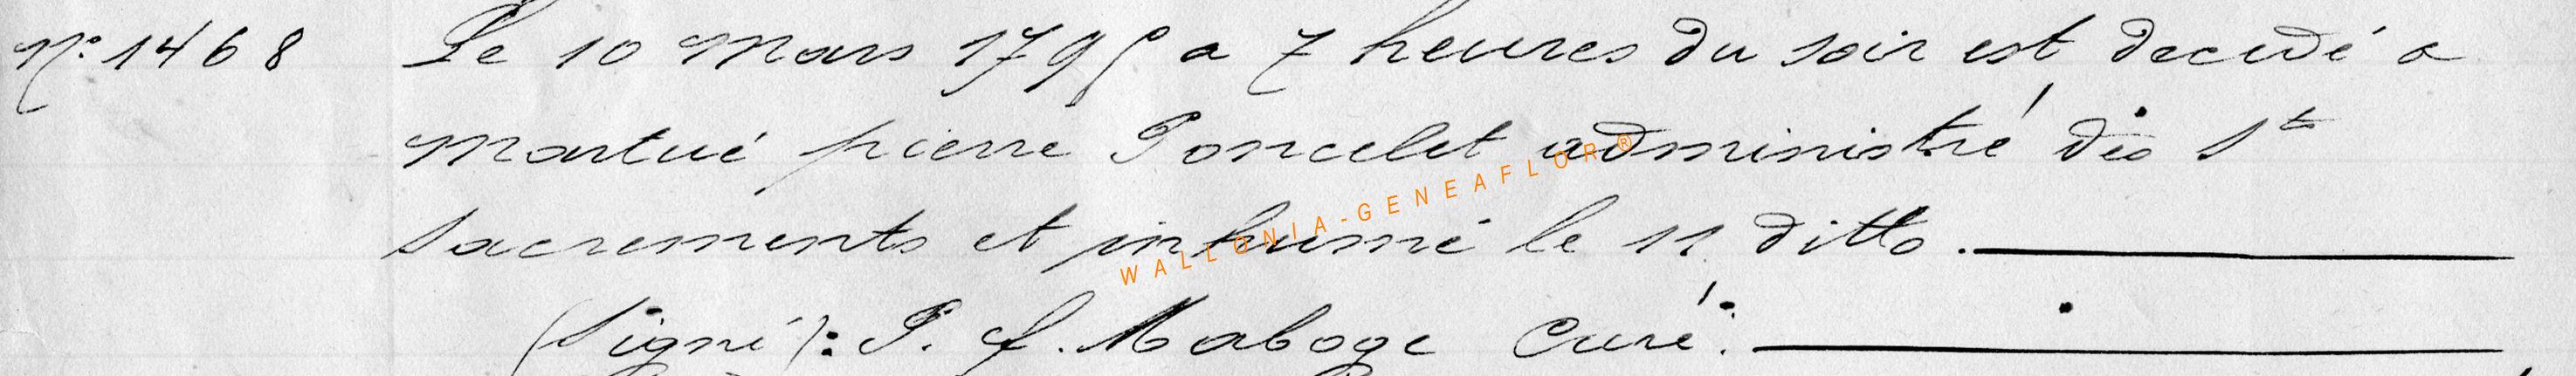 N° 1468 Le 10 Mars 1795 a 7 heures du soir est decedé a
Martué pierre Poncelet administré des Sts
Sacrements et inhumé le 11 ditto.
(Signé): P. J. Maboge Curé.
WALLONIA-GENEAFLOR®